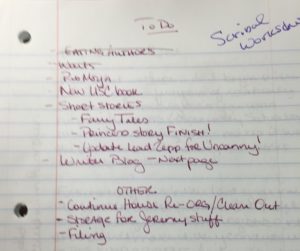 To Do
Scribal
- EATING AUTHORS
- Wants
- New USC book
- Short stories
- Fairy Tales
- Princess story FINISH!
- Update Lead Zepp for Uncanny!
- Writer Blog - Next page
OTHER
- Continue House Re-org/Clean Out
- Storage for Jeremy stuff
- Filing